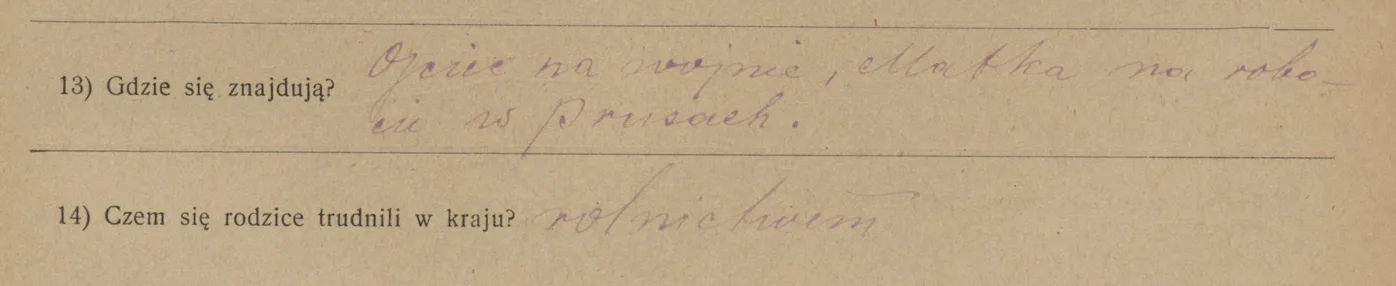 13) Gdzie się znajdują? Ojciec na wojnie, Matka na robo-
cie w Prusach.
14) Czem się rodzice trudnili w kraju? rolnictwem